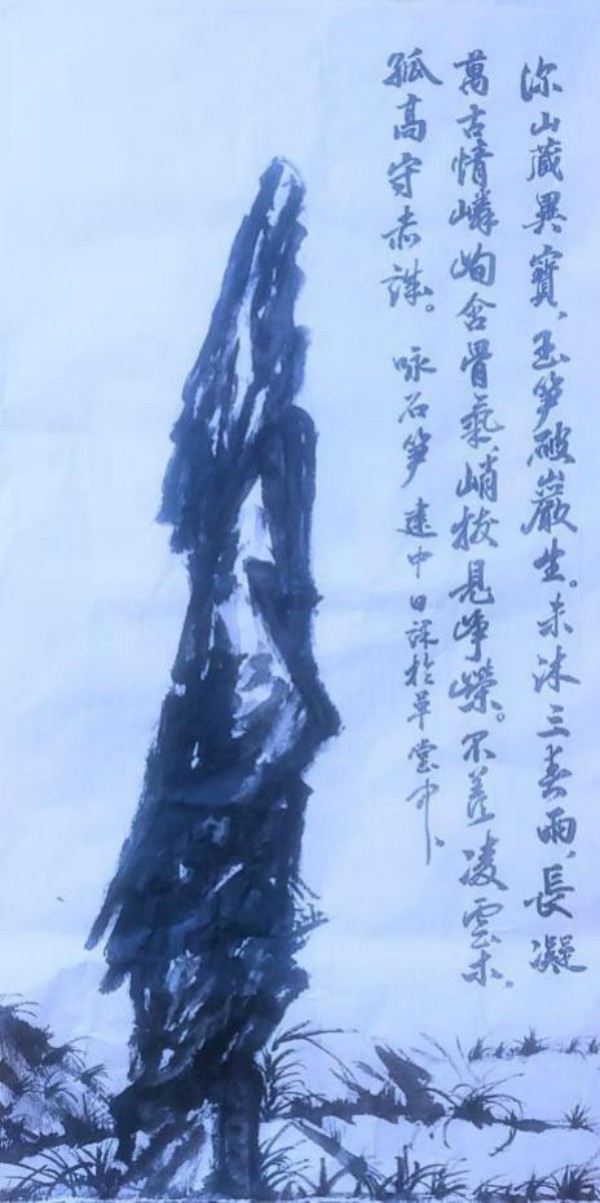 深山藏異寶，玉笋破巖生。未沐三春雨，長凝
萬古情。嶙峋含骨氣，峭拔見崢嶸。不羨凌雲木，
孤高守赤誠。 咏石笋 建中日課於草堂中、